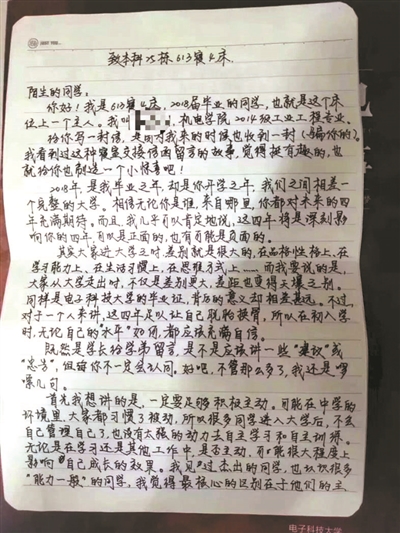 致本科25栋613寝4床
陌生的同学:
你好!我是613寝4床,2018届毕业的同学,也就是这个床
位上一个主人。我叫 ,机电学院2014级工业工程专业,
给你写一封信,是因为我来的时候也收到一封(骗你的)。
我看到过这种寝室交接信函留言的故事,觉得挺有趣的,也
就给你也制造一个小惊喜吧!
2018年,是我毕业之年,却是你开学之年,我们之间相差一
个完整的大学。相信无论你是谁,来自哪里,你都对未来的四
年充满期待。而且,我几乎可以肯定地说,这四年将是深刻影
响你的四年,可以是正面的,也有可能是负面的。
其实大家进大学之时,差别就是很大的,在品格性格上,在
学习能力上,在生活习惯上,在思维方式上……而我要说的是,
大家从大学走出时,不仅是差别更大,差距也变得天壤之别。
同样是电子科技大学的毕业证,背后的意义却相差甚远。不过,
对于一个人来讲,这四年足以让自己脱胎换骨,所以在初入学
时,无论自己的"水平"如何,都应该充满自信。
既然是学长给学弟留言,是不是应该讲一些"建议"或
"忠告",但给你不一定会认同。好吧,不管那么多了,我还是啰
嗦几句。
首先我想讲的是,一定要足够积极主动。可能在中学的
环境里,大家都习惯了被动,所以很多同学进入大学后,不会
自己管理自己了,也没有太强的动力去自主学习和自主训练。
无论是在学习还是其他工作中,是否主动,可能很大程度上
影响了自己成长的效果。我见过杰出的同学,也认识很多
"能力一般"的同学,我觉得最核心的区别在于他们的主
电子科技大学